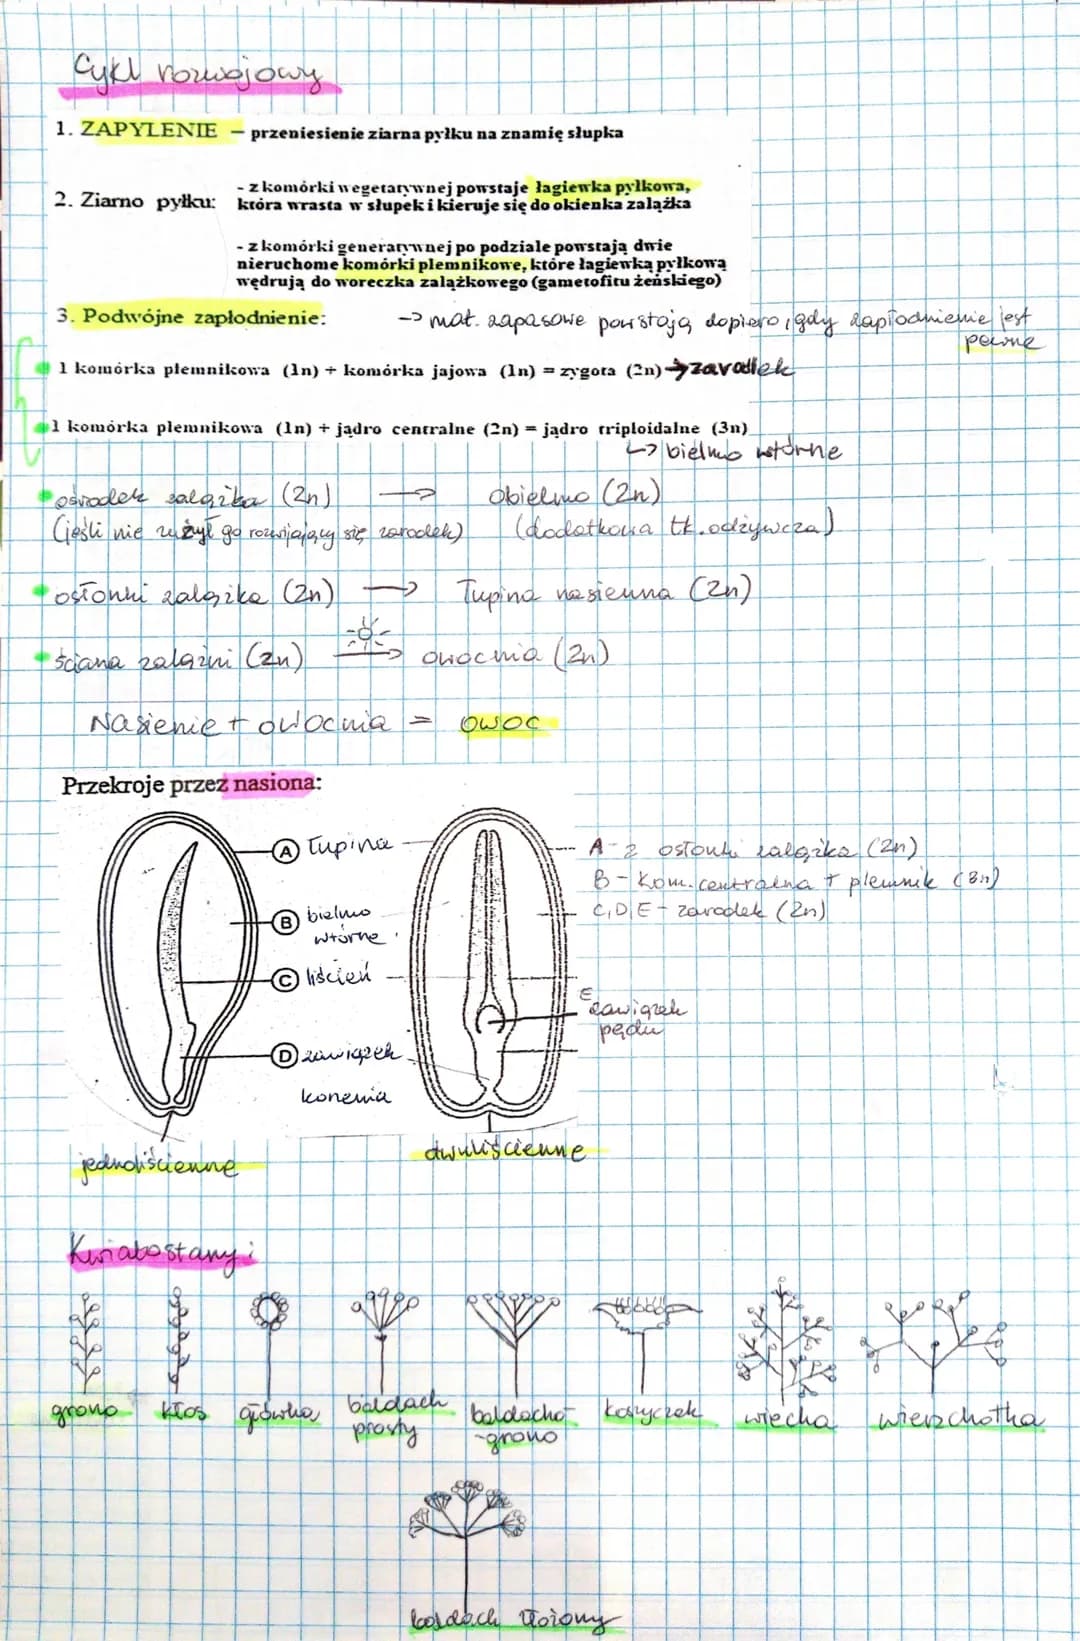 Cykl rozwojowy
1. ZAPYLENIE – przeniesienie ziarna pyłku na znamię słupka
2. Ziarno pyłku:
- z komórki wegetatywnej powstaje łagiewka pyłkowa,
która wrasta w słupek i kieruje się do okienka zalążka
- z komórki generatywnej po podziale powstają dwie
nieruchome komórki plemnikowe, które łagiewką pyłkową
wędrują do woreczka zalążkowego (gametofitu żeńskiego)
3. Podwójne zapłodnienie:
-> mat. zapasowe powstają dopiero, gdy zapłodnienie jest
pewne
1 komórka plemnikowa (1n) + komórka jajowa (1n) = zygota (2n) → zarodek
1 komórka plemnikowa (1n) + jądro centralne (2n) = jądro triploidalne (3n)
↳ bielmo wtórne
• ośrodek zalążka (2n) → obielmo (2n)
(jeśli nie zużył go rozwijający się zarodek) (dodatkowa tk. odżywcza)
• osłonki zalążka (2n) → Łupina nasienna (2n)
• ściana zalążni (2n) → owocnia (2n)
Nasienie + owocnia = owoc
Przekroje przez nasiona:
A łupina
B bielmo
wtórne
C liścień
D zawiązek
korzenia
A - z osłonki zalążka (2n)
B - kom. centralna + plemnik (3n)
C, D, E - zarodek (2n)
E
zawiązek
pędu
jednoliścienne
dwuliścienne
Kwiatostany:
grono
kłos
główka
baldach
prosty
baldacho-
-grono
koszyczek
wiecha
wierzchotka
baldach złożony